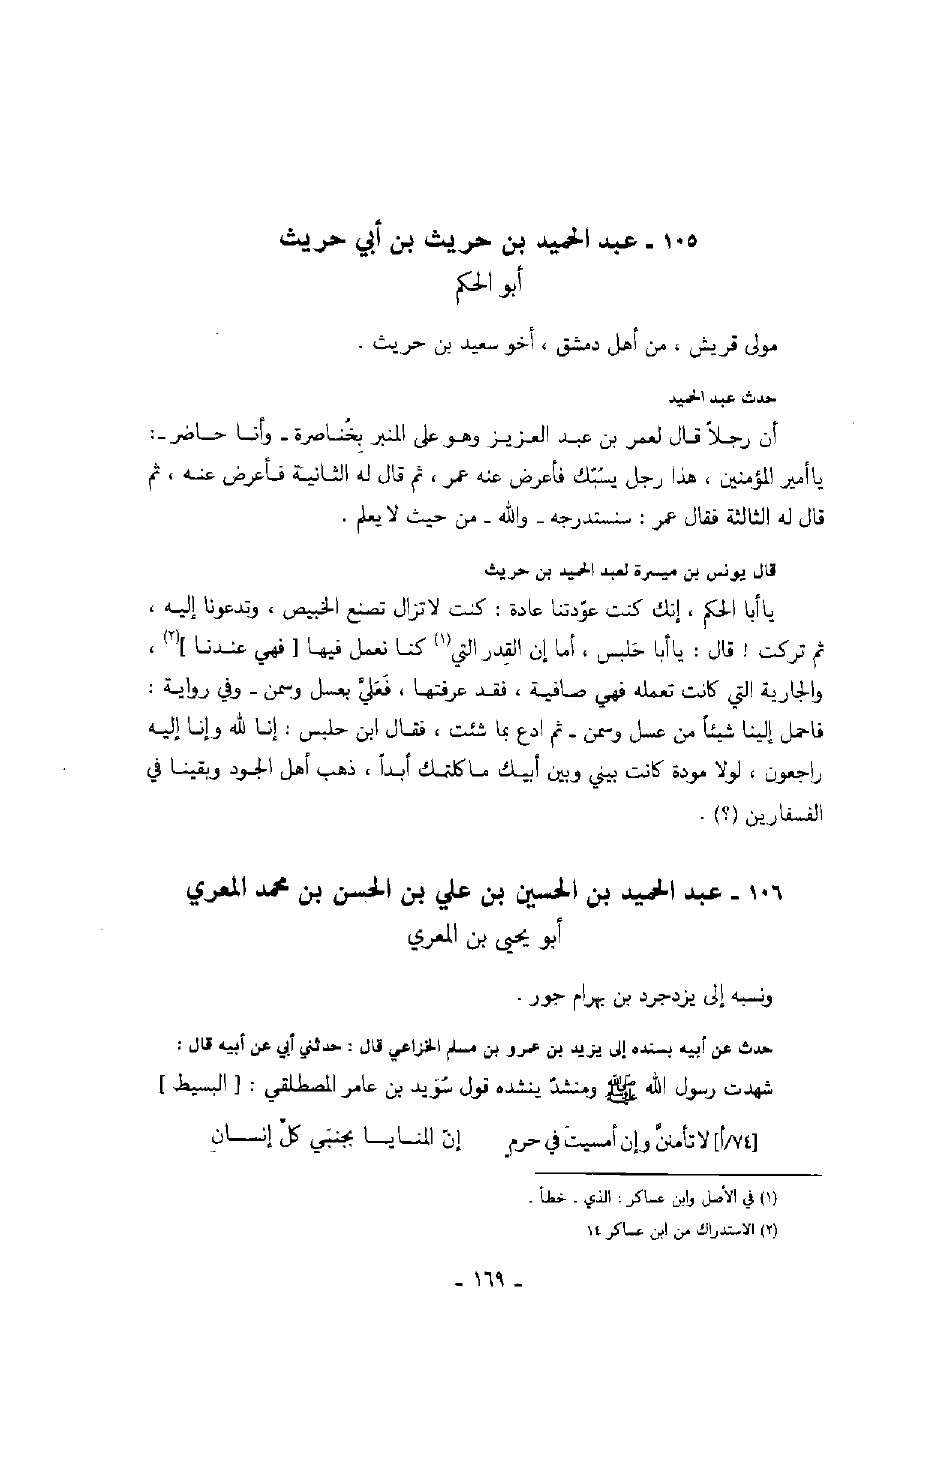 ١٠٥ ـ عبد الحميد بن حريث بن أبي حريث
أبو الحكم
مولى قريش ، من أهل دمشق ، أخو سعيد بن حريث .
حدث عبد الحميد
أن رجلاً قال لعمر بن عبد العزيز وهو على المنبر بخُناصرة ـ وأنا حاضر ـ :
ياأمير المؤمنين ، هذا رجل يسُبّك فأعرض عنه عمر ، ثم قال له الثانية فأعرض عنه ، ثم
قال له الثالثة فقال عمر : سنستدرجه ـ والله ـ من حيث لا يعلم .
قال يونس بن ميسرة لعبد الحميد بن حريث
ياأبا الحكم ، إنك كنت عوّدتنا عادة : كنت لاتزال تصنع الخبيص ، وتدعونا إليه ،
ثم تركت ! قال : ياأبا حَلبس ، أما إن القِدر التي(١) كنا نعمل فيها [ فهي عندنا ](٢) ،
والجارية التي كانت تعمله فهي صافية ، فقد عرفتها ، فَعَليَّ بعسل وسمن ـ وفي رواية :
فاحمل إلينا شيئاً من عسل وسمن ـ ثم ادع بما شئت ، فقال ابن حلبس : إنا لله وإنا إليه
راجعون ، لولا مودة كانت بيني وبين أبيك ماكلمتك أبداً ، ذهب أهل الجود وبقينا في
الفسفارين (؟) .
١٠٦ ـ عبد الحميد بن الحسين بن علي بن الحسن بن محمد المعري
أبو يحيى بن المعري
ونسبه إلى يزدجرد بن بهرام جور .
حدث عن أبيه بسنده إلى يزيد بن عمرو بن مسلم الخزاعي قال : حدثني أبي عن أبيه قال :
شهدت رسول الله ﷺ ومنشدٌ ينشده قول سُوَيد بن عامر المصطلقي : [ البسيط ]
[٧٤/أ] لا تأمننَّ وإن أمسيتَ في حرمٍ إنّ المنايا بجنبَي كلّ إنسانِ
(١) في الأصل وابن عساكر : الذي . خطأ .
(٢) الاستدراك من ابن عساكر ١٤
ـ ١٦٩ ـ